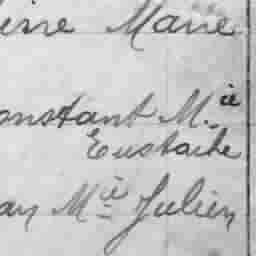 Marie
onstant M.ie
Eustache
an Mie Julien